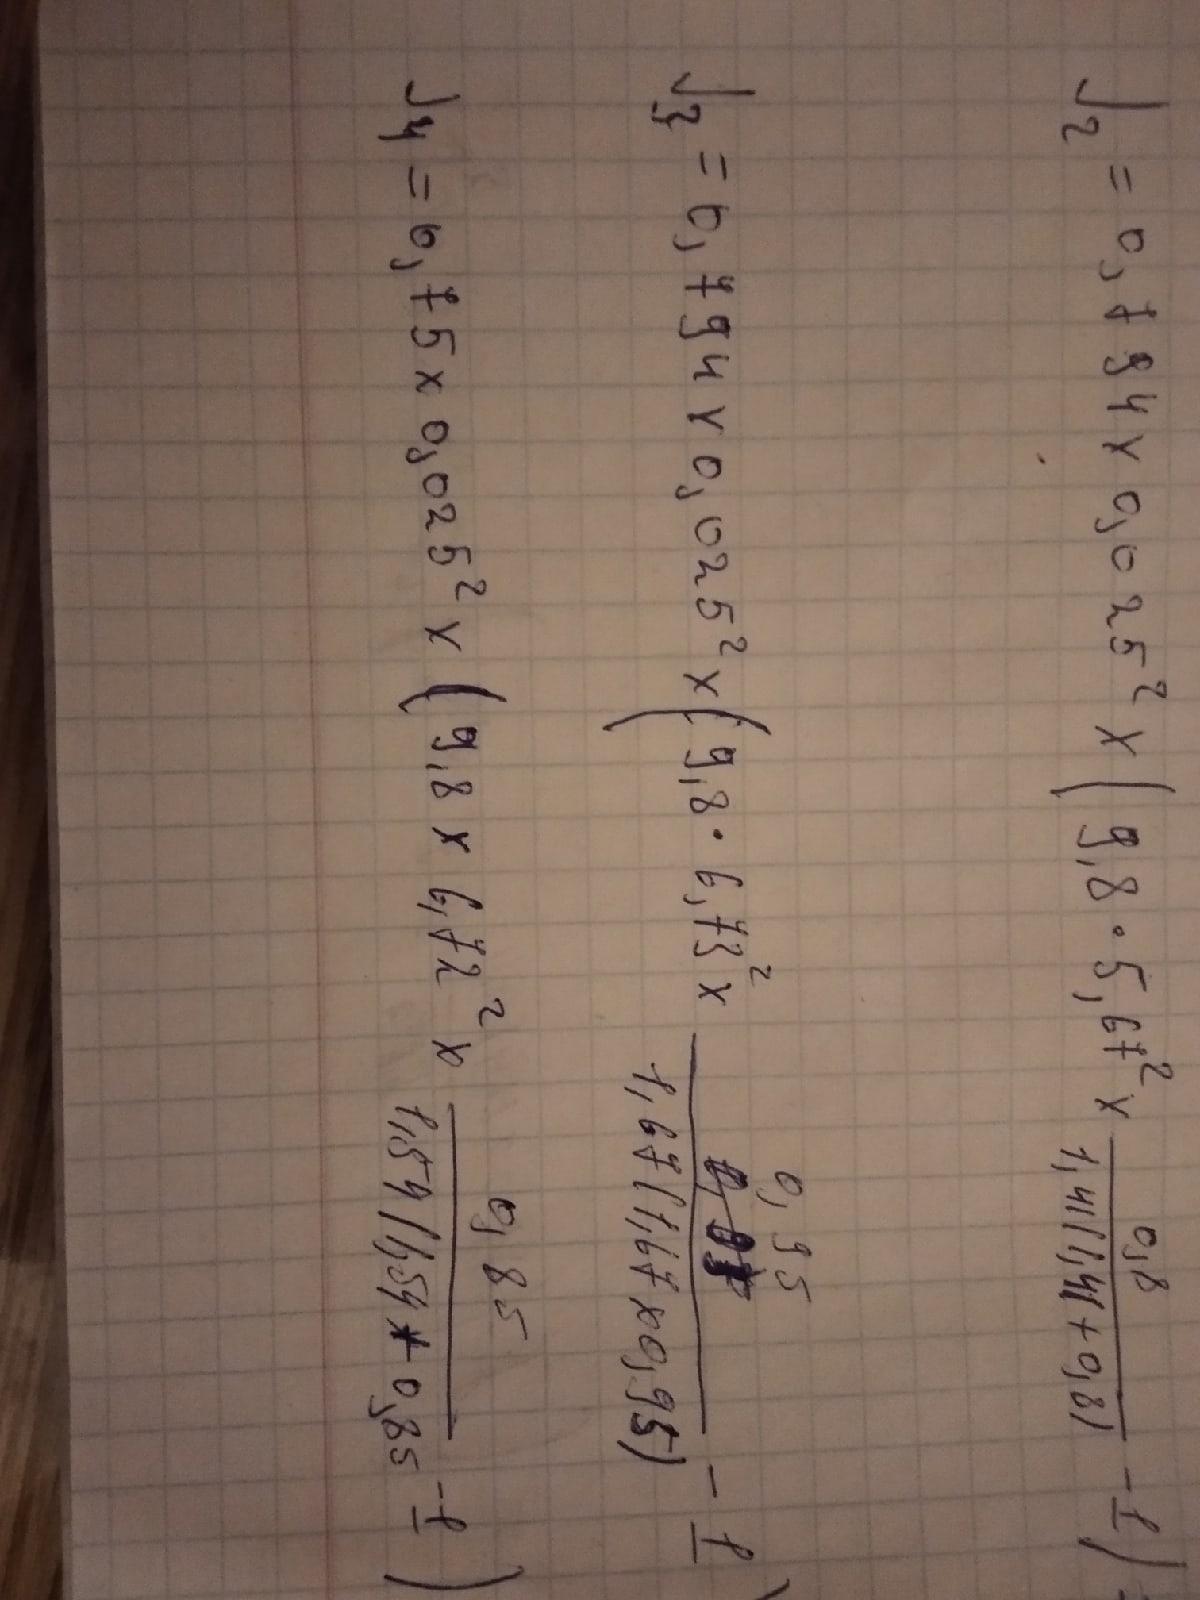 J2 = 0,794 x 0,025² x (9,8 · 5,67² x 0,8 / 1,41(1,41+0,8) - 1) =
J3 = 0,794 x 0,025² x (9,8 · 6,73² x 0,95 / 1,67(1,67x0,95) - 1)
J4 = 0,75 x 0,025² x (9,8 x 6,72² x 0,85 / 1,54(1,54+0,85 - 1)